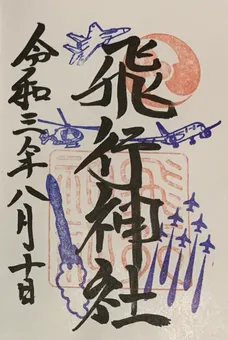 飛行神社
令和三年八月十日